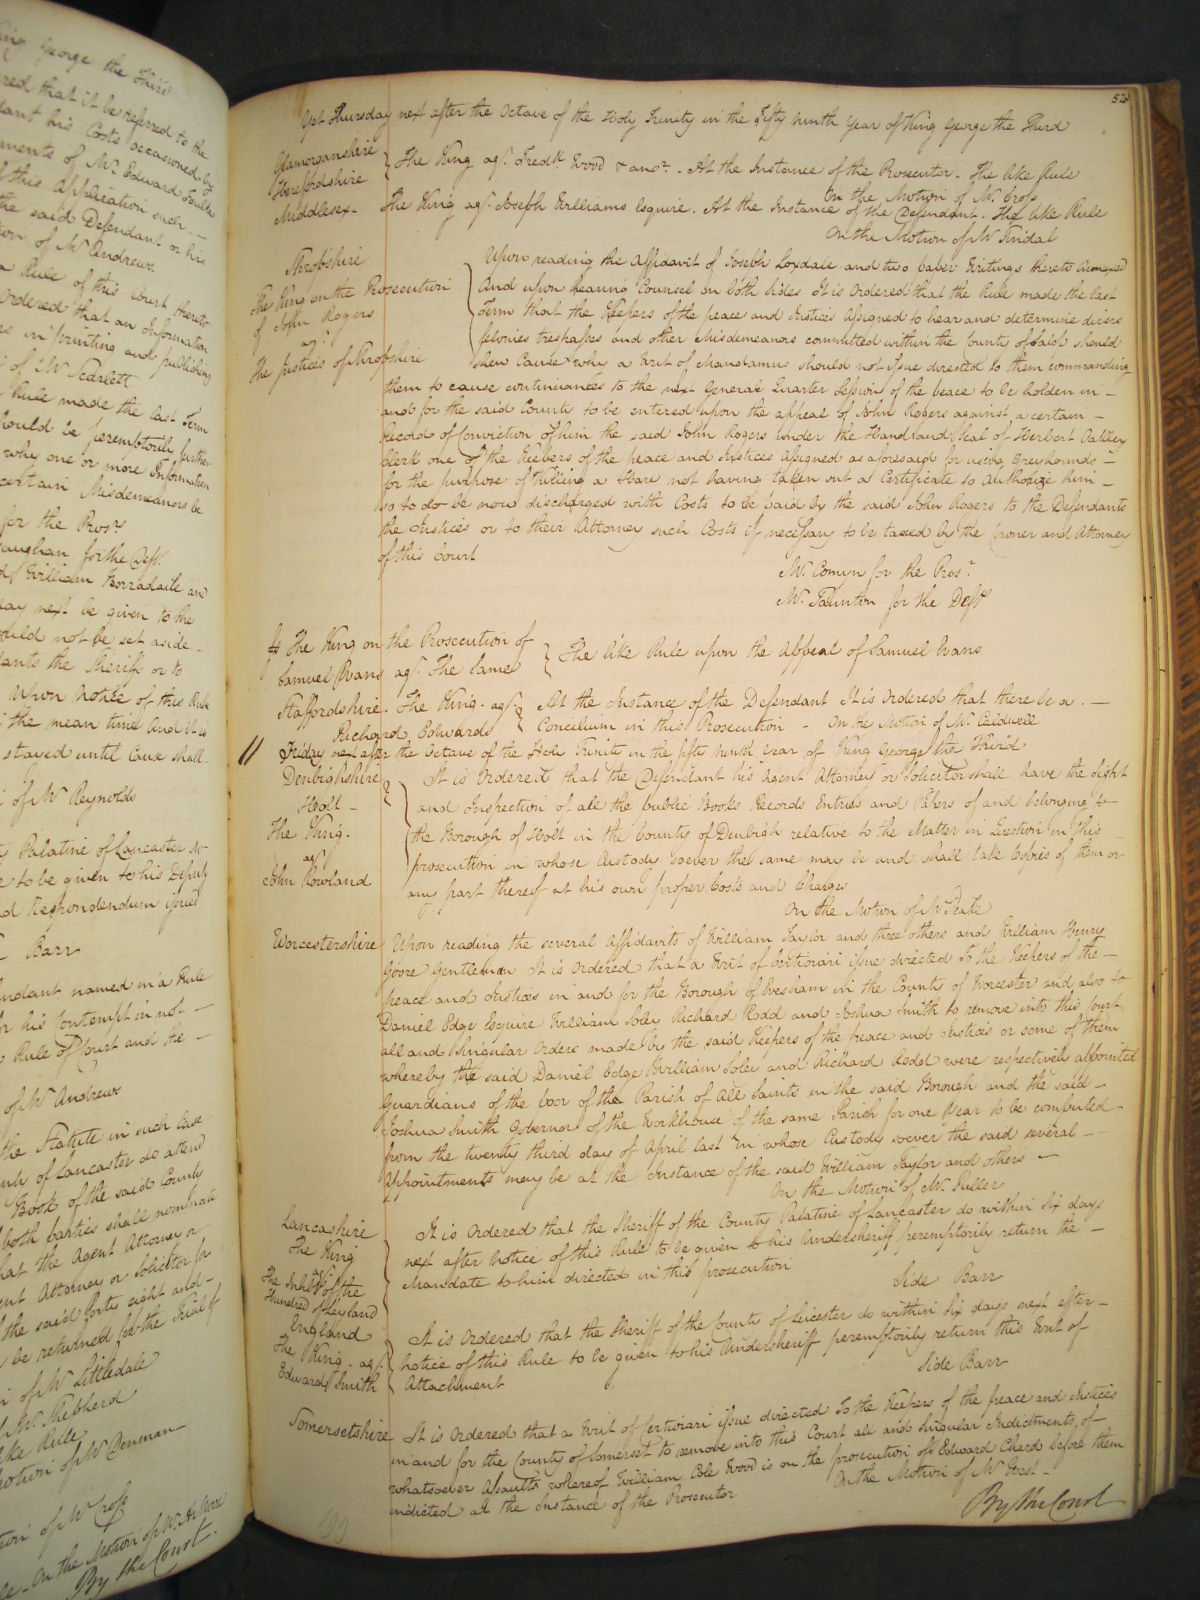 ing George the Third
red that it be referred to the
dant his Costs occasioned by
ments of Mr. Edward
f this Application such
the said Defendant or his
ion of Mr Andrews
a Rule of this Court thereto
ordered that an Information
in printing and publishing
of Mr Scarlett
Rule made the last Term
hould be peremptorily further
why one or more Information
certain Misdemeanors be
for the Prosr.
aughan for the Deft.
of William Borradaile and
day next be given to the
ould not be set aside
dants the Sheriff or to
Upon notice of this Rule
the mean time And it is
stayed until Cause shall
of Mr Reynolds
Palatine of Lancaster do
e to be given to his Deputy
d Respondendum issued
Barr
endant named in a Rule
or his Contempt in not
Rule of Court and the
of Mr Andrews
the Statute in such Case
unty of Lancaster do attend
Book of the said County
both parties shall nominate
hat the Agent Attorney or
ent Attorney or Solicitor for
the said forty eight and
be returned for the Trial of
of Mr Littledale
Mr. Shepherd
like Rule
Motion of Mr Denman
tion of Mr Cross
On the Motion of Mr.
By the Court.
52
Yet Thursday next after the Octave of the Holy Trinity in the Fifty ninth Year of King George the Third
Glamorganshire
Herefordshire
The King agt. Fredk. Wood & anor. - At the Instance of the Prosecutor - The like Rule
On the Motion of Mr. Cross
Middlesex - The King agt. Joseph Williams Esquire. At the Instance of the Defendant. The like Rule
On the Motion of Mr Tindal
Shropshire
The King on the Prosecution
of John Rogers
agt.
The Justices of Shropshire
Upon reading the Affidavit of Joseph Loxdale and two paper Writings thereto annexed
And upon hearing Counsel on both sides It is Ordered that the Rule made the last
Term that the Keepers of the peace and Justices Assigned to hear and determine divers
felonies trespasses and other Misdemeanors committed within the County of Salop should
shew Cause why a Writ of Mandamus should not issue directed to them commanding
them to cause continuances to the next General Quarter Session of the peace to be holden in -
and for the said County to be entered upon the appeal of John Rogers against a certain -
Record of Conviction of him the said John Rogers under the Hand and Seal of Herbert Oakley
Clerk one of the Keepers of the peace and Justices Assigned as aforesaid for using Greyhounds -
for the purpose of killing a Hare not having taken out a Certificate to authorize him -
so to do be now discharged with Costs to be paid by the said John Rogers to the Defendants
the Justices or to their Attorney such Costs if necessary to be taxed by the Coroner and Attorney
of this Court
Mr. Comyn for the Prosr.
Mr. Taunton for the Defts
The King on the Prosecution of
Samuel Evans agt. The Same
The like Rule upon the Appeal of Samuel Evans
Staffordshire. The King. agt.
Richard Edwards
At the Instance of the Defendant It is Ordered that there be a . -
Concilium in this Prosecution - On the Motion of Mr. Caldwell
Friday next after the Octave of the Holy Trinity in the fifty ninth Year of King George the Third
Denbighshire
Holt -
The King.
agt.
John Rowland
It is Ordered that the Defendant his Agent Attorney or Solicitor shall have the sight
and Inspection of all the public Books Records Entries and Papers of and belonging to
the Borough of Holt in the County of Denbigh relative to the Matter in Question in this
prosecution in whose Custody soever the same may be and shall take Copies of them or
any part thereof at his own proper Costs and Charges
On the Motion of Mr Peake
Worcestershire
Upon reading the several Affidavits of William Taylor and three others and William Henry
Goore Gentleman It is Ordered that a Writ of Certiorari issue directed To the Keepers of the -
peace and Justices in and for the Borough of Evesham in the County of Worcester and also to
Daniel Edge Esquire William Soley Richard Rodd and Joshua Smith to remove into this Court
all and Singular Orders made by the said Keepers of the peace and Justices or some of them
whereby the said Daniel Edge William Soley and Richard Rodd were respectively appointed
Guardians of the poor of the Parish of All Saints in the said Borough and the said -
Joshua Smith Governor of the Workhouse of the same Parish for one Year to be computed
from the twenty third day of April last in whose Custody soever the said several -
Appointments may be at the Instance of the said William Taylor and others -
On the Motion of Mr. Puller
Lancashire
The King
agt.
The Inhabts of the
Hundred of Leyland
It is Ordered that the Sheriff of the County Palatine of Lancaster do within Six days
next after Notice of this Rule to be given to his Undersheriff peremptorily return the -
Mandate to him directed in this prosecution
Side Barr
England
The King. agt.
Edward Smith
It is Ordered that the Sheriff of the County of Leicester do within Six days next after -
notice of this Rule to be given to his Undersheriff peremptorily return this Writ of
Attachment
Side Barr
Somersetshire
It is Ordered that a Writ of Certiorari issue directed To the Keepers of the peace and Justices
in and for the County of Somerset to remove into this Court all and Singular Indictments, of
whatsoever Assaults whereof William Cole Wood is on the prosecution of Edward Chard before them
indicted at the Instance of the Prosecutor
On the Motion of Mr West -
By the Court